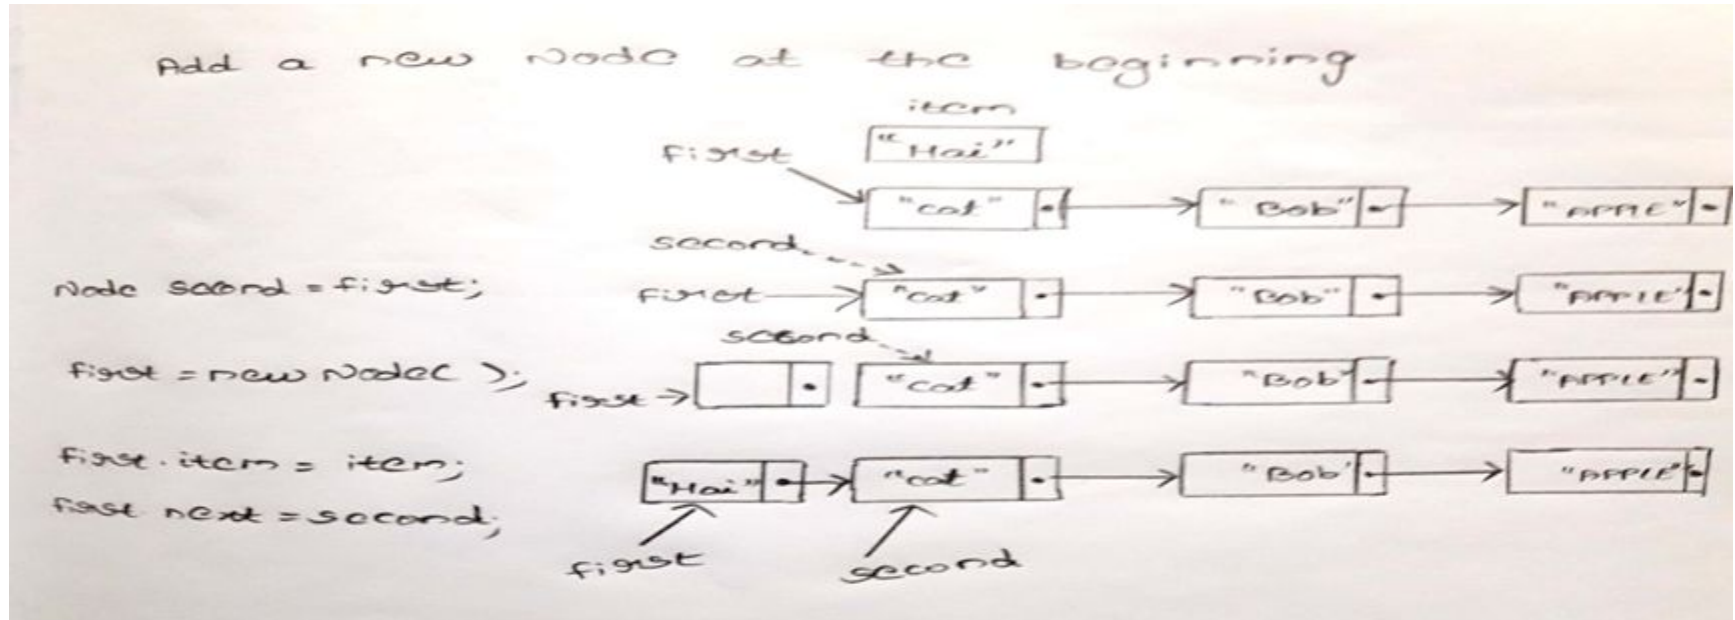 Add a new Node at the beginning
item
"Hai"
first
"cat" "Bob" "APPLE"
second
Node second = first;
first "cat" "Bob" "APPLE"
second
first = new Node( );
first "cat" "Bob" "APPLE"
first.item = item;
"Hai" "cat" "Bob" "APPLE"
first next = second;
first second